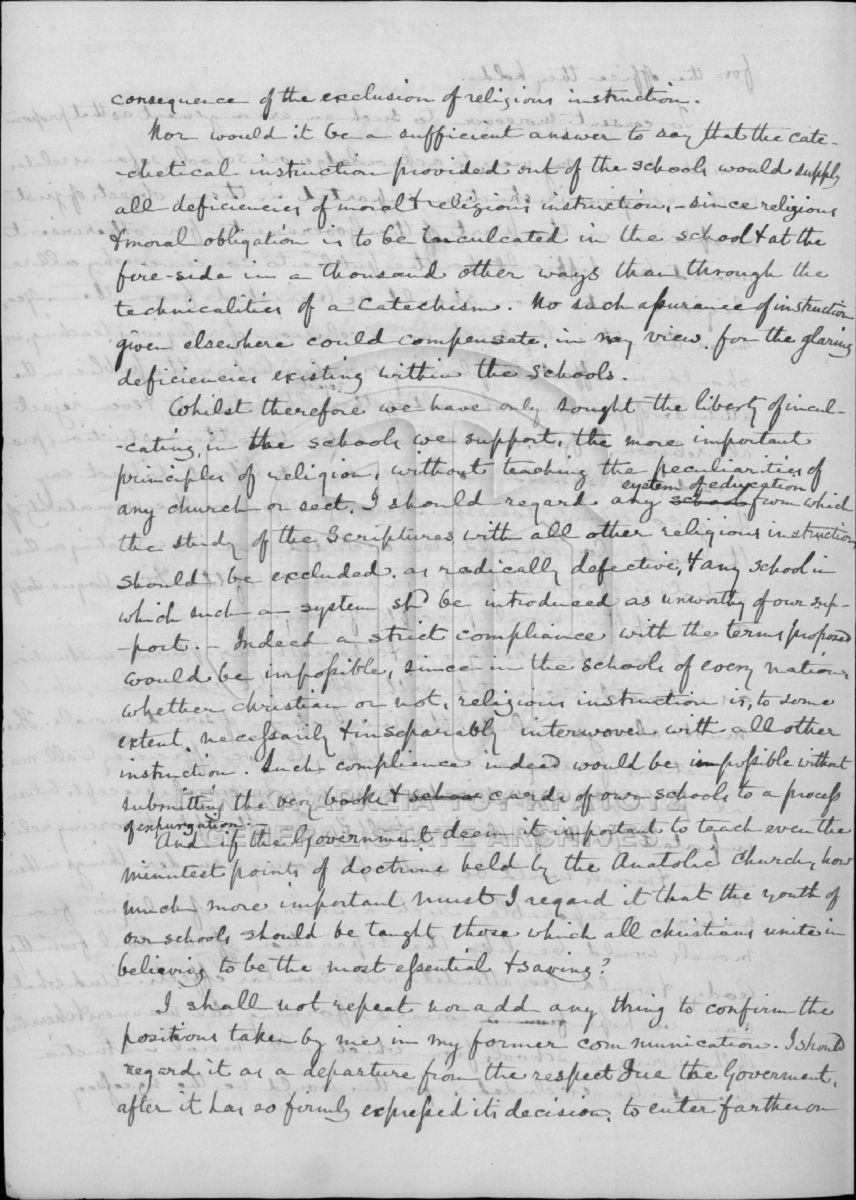 consequence of the exclusion of religious instruction.
Nor would it be a sufficient answer to say that the cate-
-chetical instruction provided out of the schools would supply
all deficiencies of moral & religious instruction, - since religious
& moral obligation is to be inculcated in the school & at the
fire-side in a thousand other ways than through the
technicalities of a Catechism. No such assurance of instruction
given elsewhere could compensate, in my view, for the glaring
deficiencies existing within the schools.
Whilst therefore we have only sought the liberty of incul-
-cating, in the schools we support, the more important
principles of religion, without teaching the peculiarities of
system of education
any church or sect, I should regard any school from which
the study of the Scriptures, with all other religious instruction,
should be excluded, as radically defective, & any school in
which such a system shd be introduced as unworthy of our sup-
-port. - Indeed a strict compliance with the terms proposed
would be impossible, since in the schools of every nation,
whether christian or not, religious instruction is, to some
extent, necessarily & inseparably interwoven with all other
instruction. Such complience indeed would be impossible without
submitting the very books & cards of our schools to a process
of expurgation. -
And if the Government deem it important to teach even the
minutest points of doctrine held by the Anatolic Church, how
much more important must I regard it that the youth of
our schools should be taught those which all christians unite in
believing to be the most essential & saving?
I shall not repeat nor add any thing to confirm the
positions taken by me in my former communication. I should
regard it as a departure from the respect due the Goverment,
after it has so firmly expressed its decision, to enter farther on
ΓΕΝΙΚΑ ΑΡΧΕΙΑ ΤΟΥ ΚΡΑΤΟΥΣ
GENERAL STATE ARCHIVES